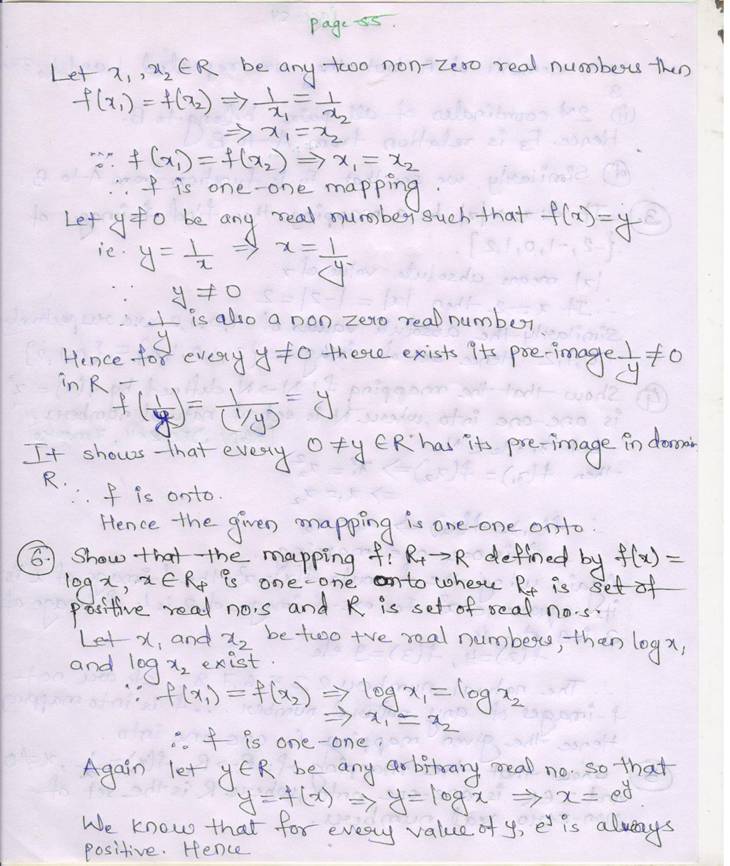 page 55.
Let x₁, x₂ ∈ R be any two non-zero real numbers then
f(x₁) = f(x₂) ⇒ 1/x₁ = 1/x₂
⇒ x₁ = x₂
∵ f(x₁) = f(x₂) ⇒ x₁ = x₂
∴ f is one-one mapping.
Let y ≠ 0 be any real number such that f(x) = y
ie. y = 1/x ⇒ x = 1/y
∵ y ≠ 0
1/y is also a non zero real number
Hence for every y ≠ 0 there exists its pre-image 1/y ≠ 0
in R
f(1/y) = 1/(1/y) = y
It shows that every 0 ≠ y ∈ R has its pre-image in domain
R.
∴ f is onto.
Hence the given mapping is one-one onto.
6. Show that the mapping f: R₊ → R defined by f(x) =
log x, x ∈ R₊ is one-one onto where R₊ is set of
positive real no.s and R is set of real no.s.
Let x₁ and x₂ be two +ve real numbers, then log x₁
and log x₂ exist.
∵ f(x₁) = f(x₂) ⇒ log x₁ = log x₂
⇒ x₁ = x₂
∴ f is one-one.
Again let y ∈ R be any arbitrary real no. so that
y = f(x) ⇒ y = log x ⇒ x = eʸ
We know that for every value of y, eʸ is always
positive. Hence